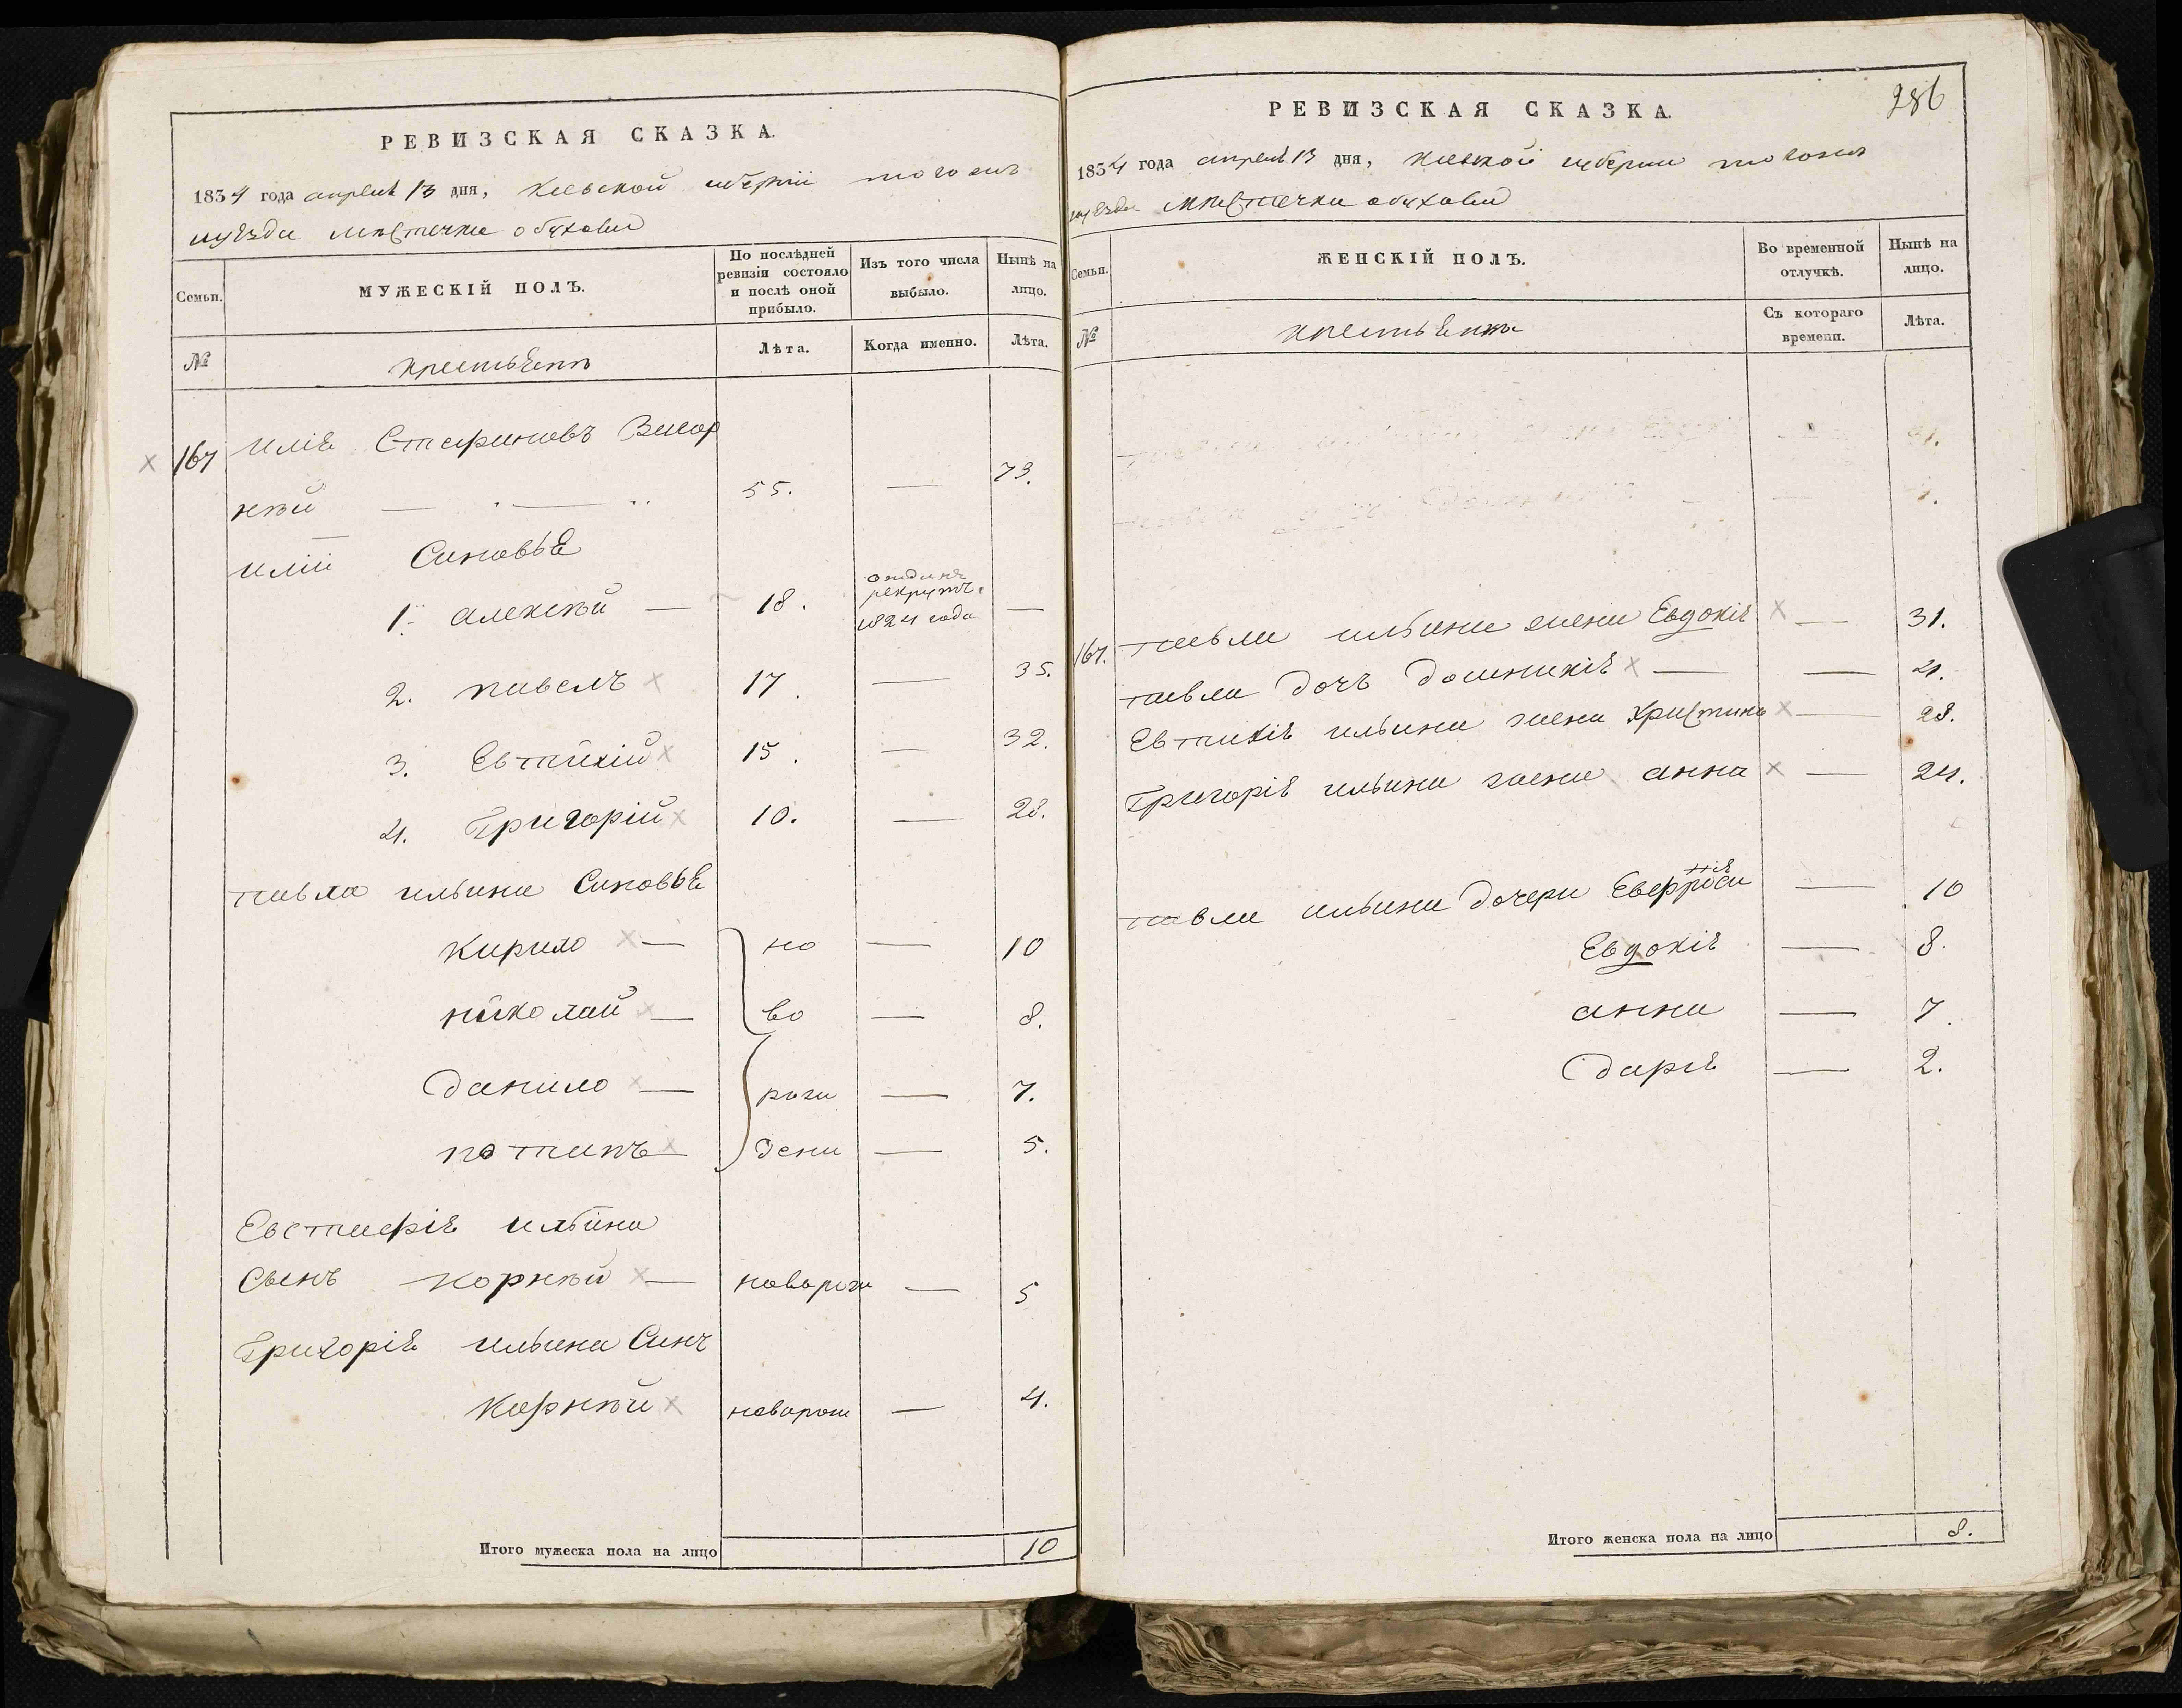 РЕВИЗСКАЯ СКАЗКА.
1834 года апреля 13 дня, Киевской губернии того жъ
уѣзда мѣстечка обухова
Семьи.
МУЖЕСКІЙ ПОЛЪ.
По послѣдней ревизіи состояло и послѣ оной прибыло.
Изъ того числа выбыло.
Нынѣ на лицо.
№
крестьѣнъ
Лѣта.
Когда именно.
Лѣта.
167 иліѣ Стефановъ
нѣй 55. — 73.
иліи Синовьѣ
1. алексѣй — 18. рекрутъ 1824 года —
2. павелъ 17. — 35.
3. Евтихій 15. — 32.
4. Григорій 10. — 28.
павла ильина Синовьѣ
Кирило — но — 10
николай — во — 8.
Данило — рож — 7.
потапъ — дени — 5.
Евстафіѣ ильина
Сынъ корнѣй — — 5
Григоріѣ ильина Синъ
Корнѣй — 4.
Итого мужеска пола на лицо 10
286
РЕВИЗСКАЯ СКАЗКА.
1834 года апреля 13 дня, Киевской губернии тогожъ
уѣзда мѣстечка обухова
Семьи.
ЖЕНСКІЙ ПОЛЪ.
Во временной отлучкѣ.
Нынѣ на лицо.
№
Съ котораго времени.
Лѣта.
167. павла ильина жена Евдокіѣ — 31.
павла дочъ Домникіѣ — — 4.
Евтихіѣ ильина жена Христина — 28.
Григоріѣ ильина жена анна — 24.
павла ильина дочери Евфросиніѣ — 10
Евдокіѣ — 8.
анна — 7.
Даріѣ — 2.
Итого женска пола на лицо 8.